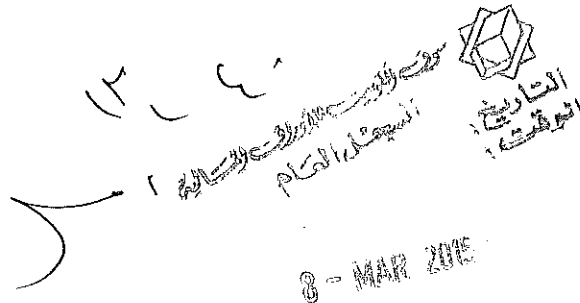 سوق الكويت للأوراق المالية ١
السجل العام
التاريخ:
الوقت:
8 - MAR 2015